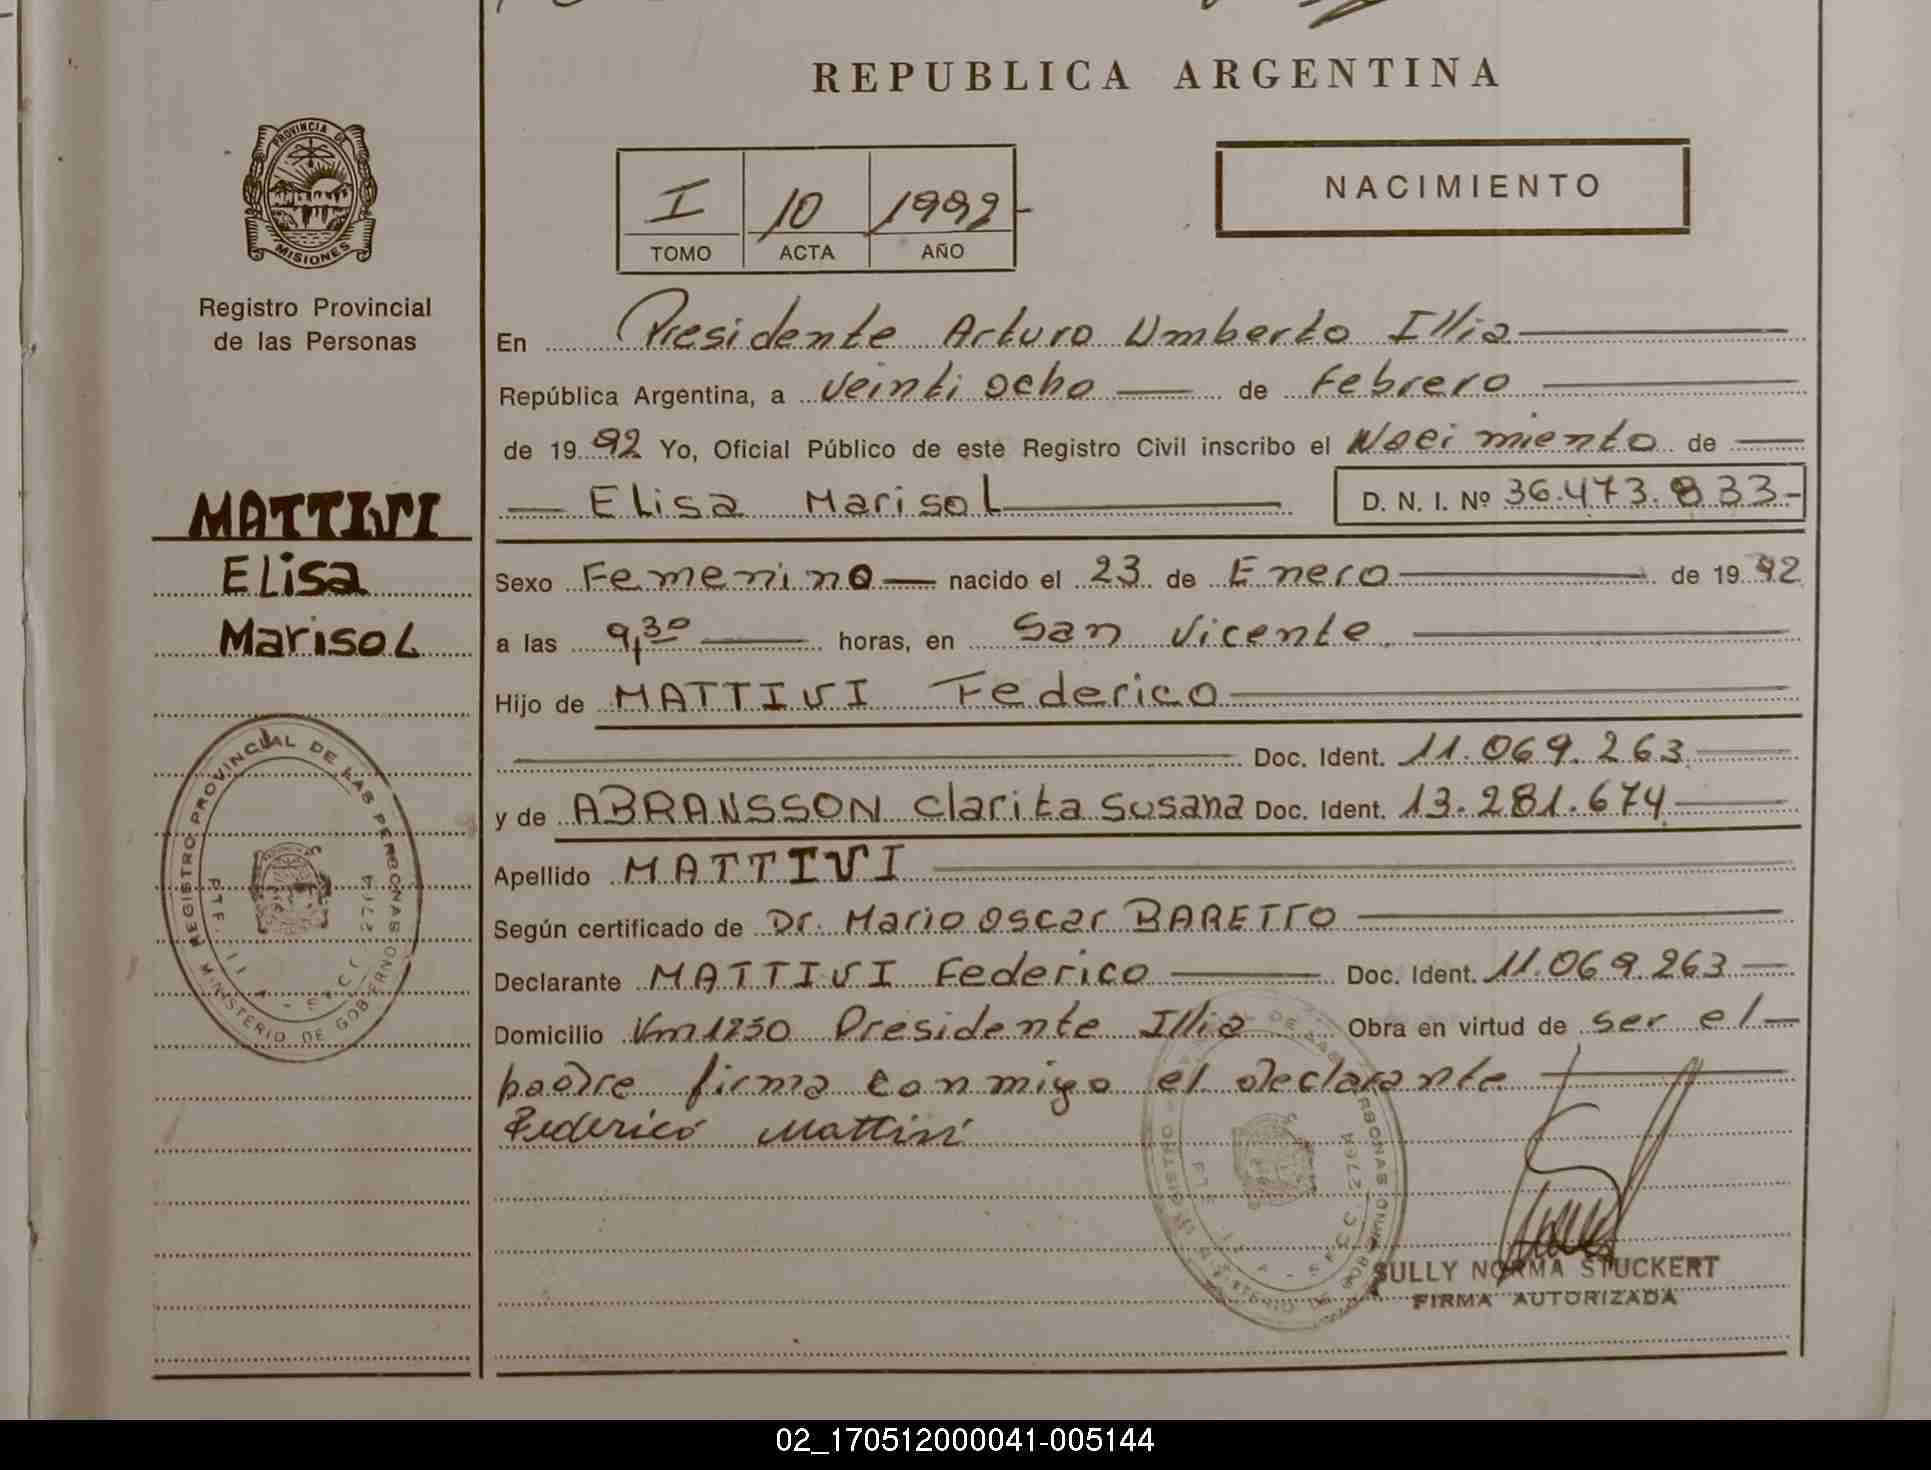 REPUBLICA ARGENTINA
PROVINCIA DE
MISIONES
Registro Provincial
de las Personas
I 10 1992
TOMO ACTA AÑO
NACIMIENTO
En Presidente Arturo Umberto Illia
República Argentina, a veinti ocho de Febrero
de 1992 Yo, Oficial Público de este Registro Civil inscribo el Nacimiento de
Elisa Marisol D. N. I. Nº 36.473.833-
MATTIVI
Elisa
Marisol
Sexo Femenino nacido el 23 de Enero de 1992
a las 9,30 horas, en San Vicente
Hijo de MATTIVI Federico
Doc. Ident. 11.069.263
y de ABRANSSON Clarita Susana Doc. Ident. 13.281.674
Apellido MATTIVI
Según certificado de Dr. Mario Oscar BARETTO
Declarante MATTIVI Federico Doc. Ident. 11.069.263
Domicilio Km1250 Presidente Illia Obra en virtud de ser el
padre firma conmigo el declarante
Federico Mattivi
REGISTRO PROVINCIAL DE LAS PERSONAS
MINISTERIO DE GOBIERNO
SULLY NORMA STUCKERT
FIRMA AUTORIZADA
02_170512000041-005144